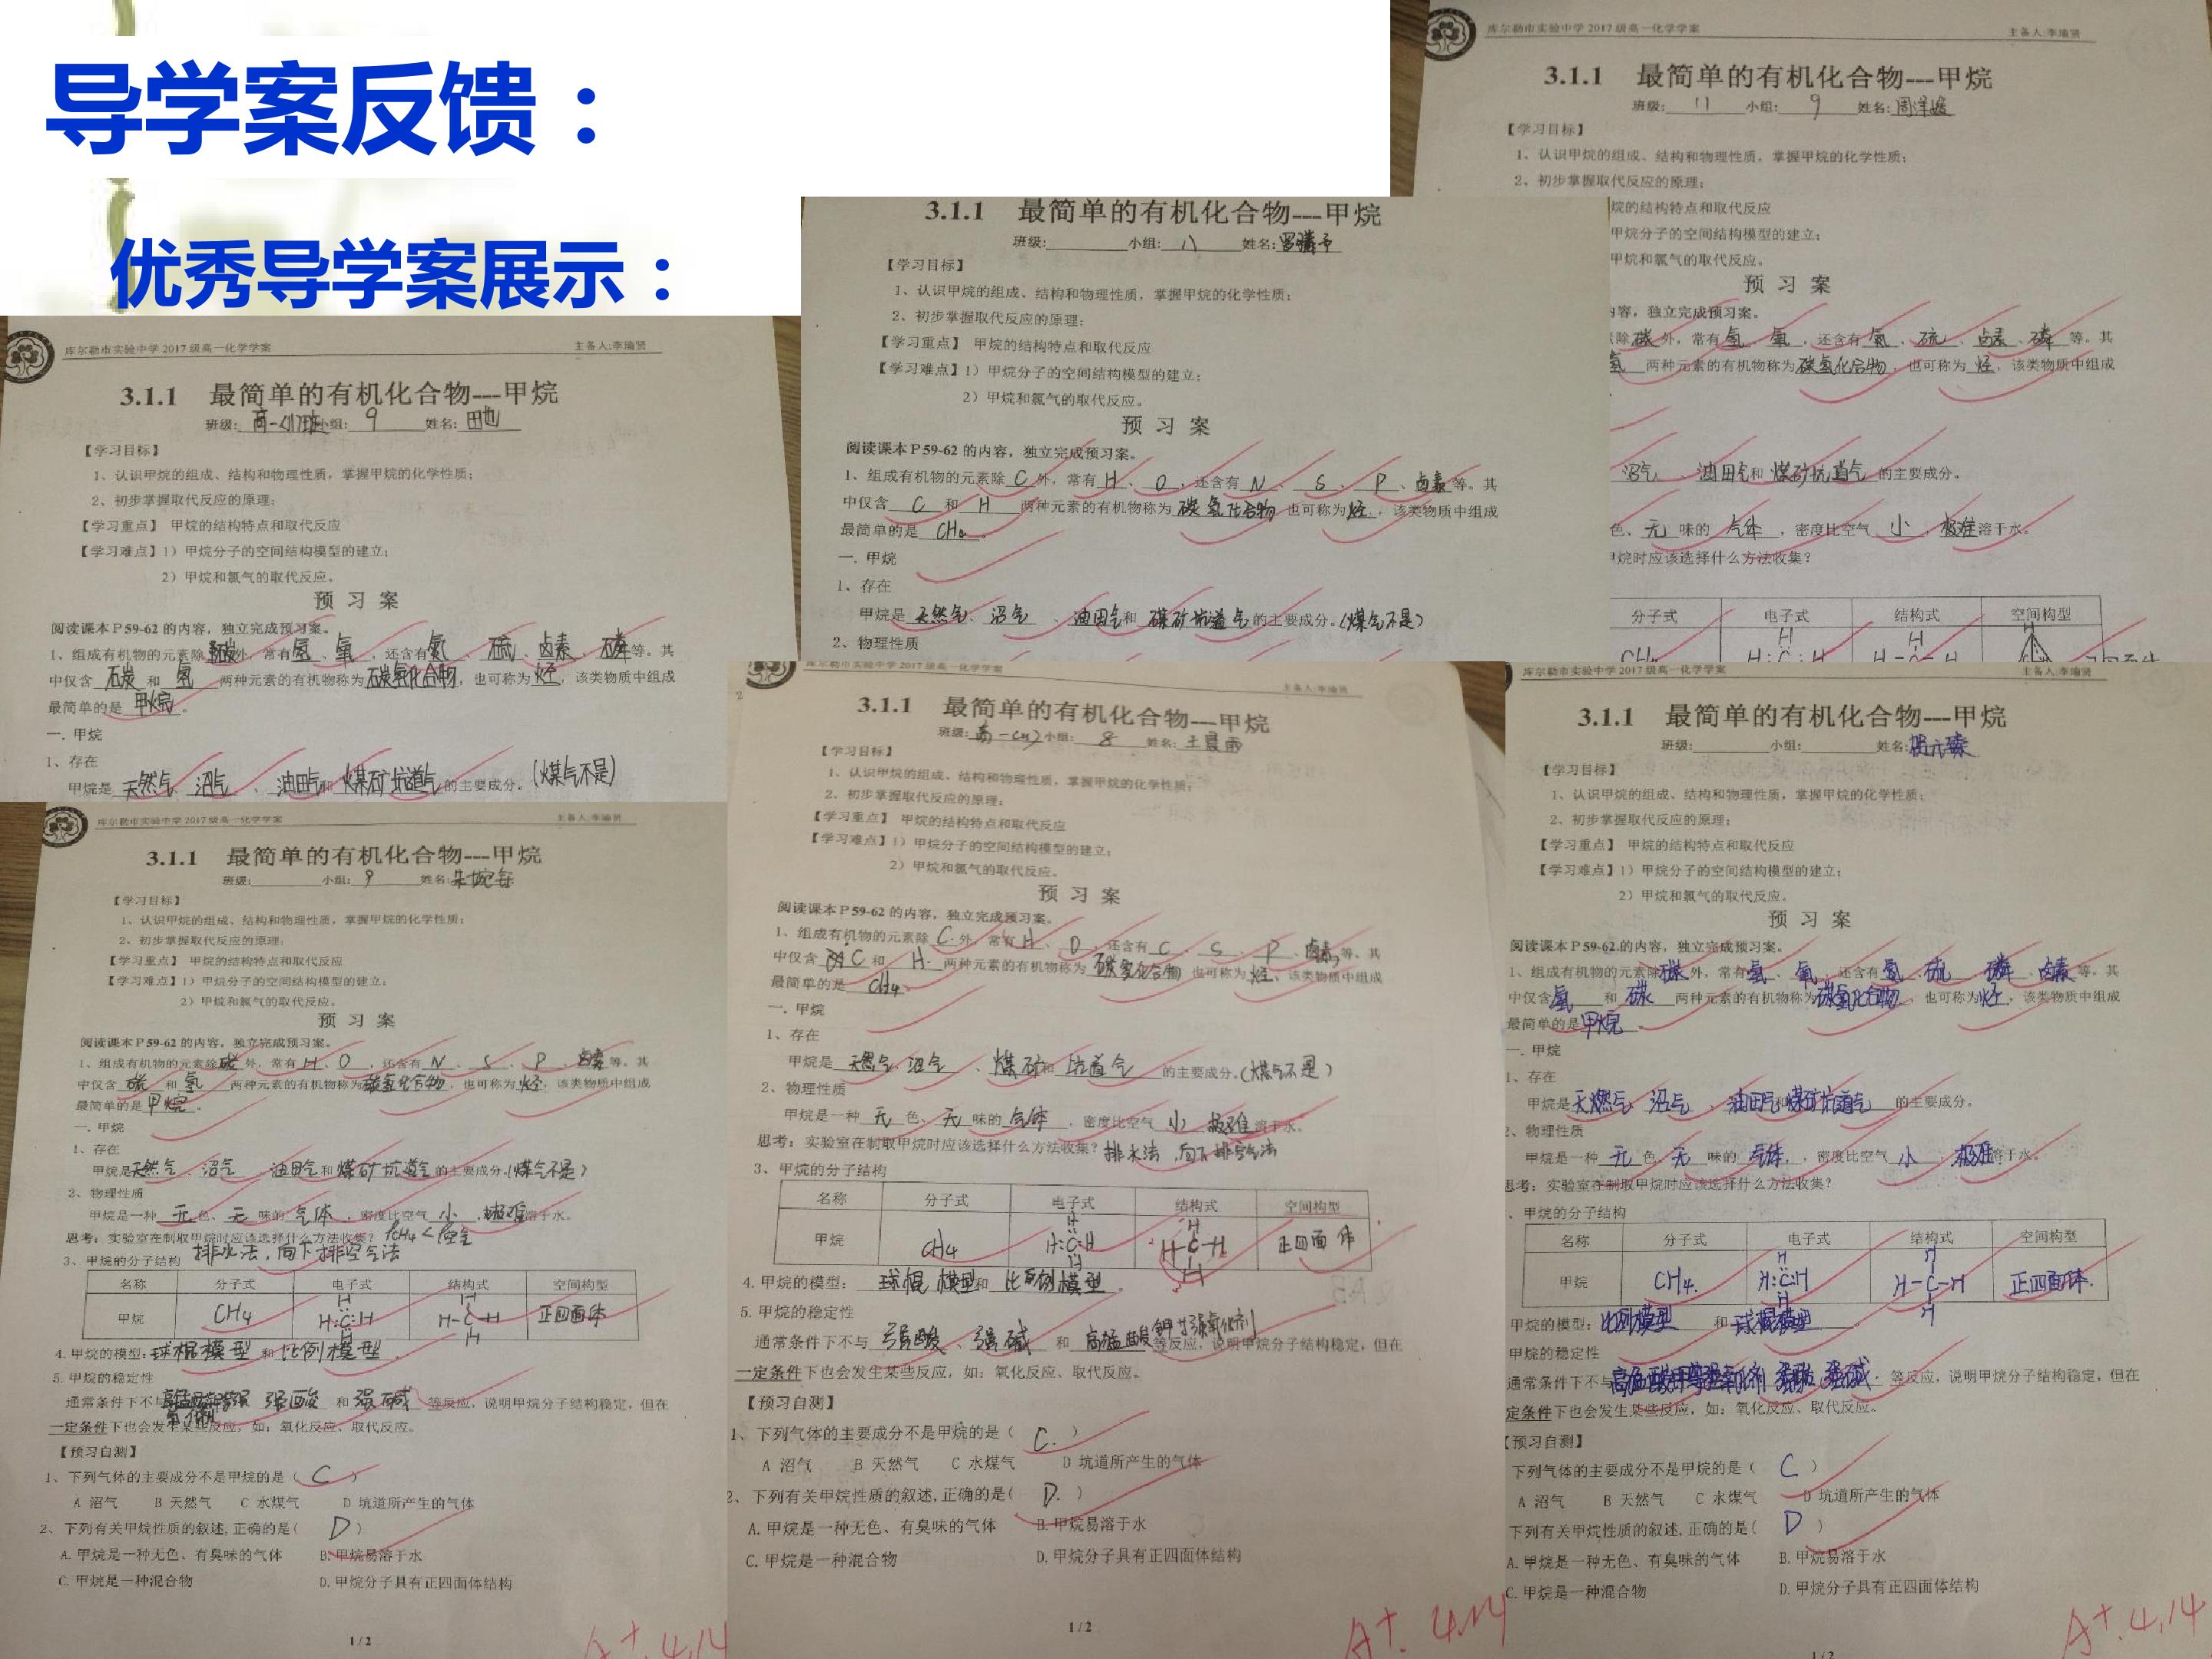 导学案反馈：
优秀导学案展示：
库尔勒市实验中学2017级高一化学学案 主备人:李瑜贤
3.1.1 最简单的有机化合物---甲烷
班级: 11 小组: 9 姓名:
【学习目标】
1、认识甲烷的组成、结构和物理性质，掌握甲烷的化学性质；
2、初步掌握取代反应的原理；
烷的结构特点和取代反应
甲烷分子的空间结构模型的建立；
甲烷和氯气的取代反应。
预 习 案
内容，独立完成预习案。
除 碳 外，常有 氢 、 氧 ，还含有 氮 、 硫 、 卤素 、 磷 等。其
氢 两种元素的有机物称为 碳氢化合物 ，也可称为 烃 ，该类物质中组成
沼气 、 油田气 和 煤矿坑道气 的主要成分。
色、 无 味的 气体 ，密度比空气 小 ， 极难 溶于水。
烷时应该选择什么方法收集？
分子式 电子式 结构式 空间构型
3.1.1 最简单的有机化合物---甲烷
班级: 小组: 八 姓名:
【学习目标】
1、认识甲烷的组成、结构和物理性质，掌握甲烷的化学性质；
2、初步掌握取代反应的原理；
【学习重点】 甲烷的结构特点和取代反应
【学习难点】1）甲烷分子的空间结构模型的建立；
2）甲烷和氯气的取代反应。
预 习 案
阅读课本P59-62的内容，独立完成预习案。
1、组成有机物的元素除 C 外，常有 H 、 O ，还含有 N 、 S 、 P 、 卤素 等。其
中仅含 C 和 H 两种元素的有机物称为 碳氢化合物 也可称为 烃 ，该类物质中组成
最简单的是 CH4 。
一. 甲烷
1、存在
甲烷是 天然气 、 沼气 、 油田气 和 煤矿坑道气 的主要成分。（煤气不是）
2、物理性质
库尔勒市实验中学2017级高一化学学案 主备人:李瑜贤
3.1.1 最简单的有机化合物---甲烷
小组: 9 姓名: 田也
【学习目标】
1、认识甲烷的组成、结构和物理性质，掌握甲烷的化学性质；
2、初步掌握取代反应的原理；
【学习重点】 甲烷的结构特点和取代反应
【学习难点】1）甲烷分子的空间结构模型的建立；
2）甲烷和氯气的取代反应。
预 习 案
阅读课本P59-62的内容，独立完成预习案。
1、组成有机物的元素除 碳 外，常有 氢 、 氧 ，还含有 氮 、 硫 、 卤素 、 磷 等。其
中仅含 碳 和 氢 两种元素的有机物称为 碳氢化合物 ，也可称为 烃 ，该类物质中组成
最简单的是 甲烷 。
一. 甲烷
1、存在
甲烷是 天然气 、 沼气 、 油田气 和 煤矿坑道气 的主要成分。（煤气不是）
库尔勒市实验中学2017级高一化学学案 主备人:李瑜贤
3.1.1 最简单的有机化合物---甲烷
班级: 小组: 9 姓名:
【学习目标】
1、认识甲烷的组成、结构和物理性质，掌握甲烷的化学性质；
2、初步掌握取代反应的原理；
【学习重点】 甲烷的结构特点和取代反应
【学习难点】1）甲烷分子的空间结构模型的建立；
2）甲烷和氯气的取代反应。
预 习 案
阅读课本P59-62的内容，独立完成预习案。
1、组成有机物的元素除 碳 外，常有 H 、 O ，还含有 N 、 S 、 P 、 卤素 等。其
中仅含 碳 和 氢 两种元素的有机物称为 碳氢化合物 ，也可称为 烃 ，该类物质中组成
最简单的是 甲烷 。
一. 甲烷
1、存在
甲烷是 天然气 、 沼气 、 油田气 和 煤矿坑道气 的主要成分。（煤气不是）
2、物理性质
甲烷是一种 无 色、 无 味的 气体 ，密度比空气 小 ， 极难 溶于水。
思考：实验室在制取甲烷时应该选择什么方法收集？ ρCH4<ρ空气
排水法，向下排空气法
3、甲烷的分子结构
名称 分子式 电子式 结构式 空间构型
甲烷 CH4 正四面体
4.甲烷的模型: 球棍模型 和 比例模型 。
5.甲烷的稳定性
通常条件下不与 强酸 和 强碱 等反应，说明甲烷分子结构稳定，但在
一定条件下也会发生某些反应，如：氧化反应、取代反应。
【预习自测】
1、下列气体的主要成分不是甲烷的是（ C ）
A 沼气 B 天然气 C 水煤气 D 坑道所产生的气体
2、下列有关甲烷性质的叙述,正确的是( D )
A.甲烷是一种无色、有臭味的气体 B.甲烷易溶于水
C.甲烷是一种混合物 D.甲烷分子具有正四面体结构
1/2
A+ 4,14
库尔勒市实验中学2017级高一化学学案 主备人:李瑜贤
3.1.1 最简单的有机化合物---甲烷
小组: 8 姓名: 王晨雨
【学习目标】
1、认识甲烷的组成、结构和物理性质，掌握甲烷的化学性质；
2、初步掌握取代反应的原理；
【学习重点】 甲烷的结构特点和取代反应
【学习难点】1）甲烷分子的空间结构模型的建立；
2）甲烷和氯气的取代反应。
预 习 案
阅读课本P59-62的内容，独立完成预习案。
1、组成有机物的元素除 C 外，常有 H 、 O ，还含有 C 、 S 、 P 、 卤素 等。其
中仅含 C 和 H 两种元素的有机物称为 碳氢化合物 也可称为 烃 ，该类物质中组成
最简单的是 CH4 。
一. 甲烷
1、存在
甲烷是 天然气 沼气 、 煤矿 和 坑道气 的主要成分。（煤气不是）
2、物理性质
甲烷是一种 无 色、 无 味的 气体 ，密度比空气 小 极难 溶于水。
思考：实验室在制取甲烷时应该选择什么方法收集？ 排水法，向下排空气法
3、甲烷的分子结构
名称 分子式 电子式 结构式 空间构型
甲烷 CH4 正四面体
4.甲烷的模型: 球棍模型 和 比例模型 。
5.甲烷的稳定性
通常条件下不与 强酸 、 强碱 和 高锰酸钾 等反应，说明甲烷分子结构稳定，但在
一定条件下也会发生某些反应，如：氧化反应、取代反应。
【预习自测】
1、下列气体的主要成分不是甲烷的是（ C. ）
A 沼气 B 天然气 C 水煤气 D 坑道所产生的气体
2、下列有关甲烷性质的叙述,正确的是( D. )
A.甲烷是一种无色、有臭味的气体 B.甲烷易溶于水
C.甲烷是一种混合物 D.甲烷分子具有正四面体结构
1/2
A+. 4.14
库尔勒市实验中学2017级高一化学学案 主备人:李瑜贤
3.1.1 最简单的有机化合物---甲烷
班级: 小组: 姓名:
【学习目标】
1、认识甲烷的组成、结构和物理性质，掌握甲烷的化学性质；
2、初步掌握取代反应的原理；
【学习重点】 甲烷的结构特点和取代反应
【学习难点】1）甲烷分子的空间结构模型的建立；
2）甲烷和氯气的取代反应。
预 习 案
阅读课本P59-62的内容，独立完成预习案。
1、组成有机物的元素除 碳 外，常有 氢 、 氧 ，还含有 氮 、 硫 、 磷 、 卤素 等。其
中仅含 氢 和 碳 两种元素的有机物称为 碳氢化合物 ，也可称为 烃 ，该类物质中组成
最简单的是 甲烷 。
一. 甲烷
1、存在
甲烷是 天燃气 沼气 、 油田气 和 煤矿坑道气 的主要成分。
2、物理性质
甲烷是一种 无 色、 无 味的 气体 ，密度比空气 小 ， 极难 溶于水。
思考：实验室在制取甲烷时应该选择什么方法收集？
、甲烷的分子结构
名称 分子式 电子式 结构式 空间构型
甲烷 CH4. 正四面体.
甲烷的模型: 比例模型 和 球棍模型 。
甲烷的稳定性
通常条件下不与 高锰酸钾等强氧化剂 强酸 强碱 等反应，说明甲烷分子结构稳定，但在
定条件下也会发生某些反应，如：氧化反应、取代反应。
【预习自测】
下列气体的主要成分不是甲烷的是（ C ）
A 沼气 B 天然气 C 水煤气 D 坑道所产生的气体
下列有关甲烷性质的叙述,正确的是( D )
A.甲烷是一种无色、有臭味的气体 B.甲烷易溶于水
C.甲烷是一种混合物 D.甲烷分子具有正四面体结构
1/2
A+. 4,14